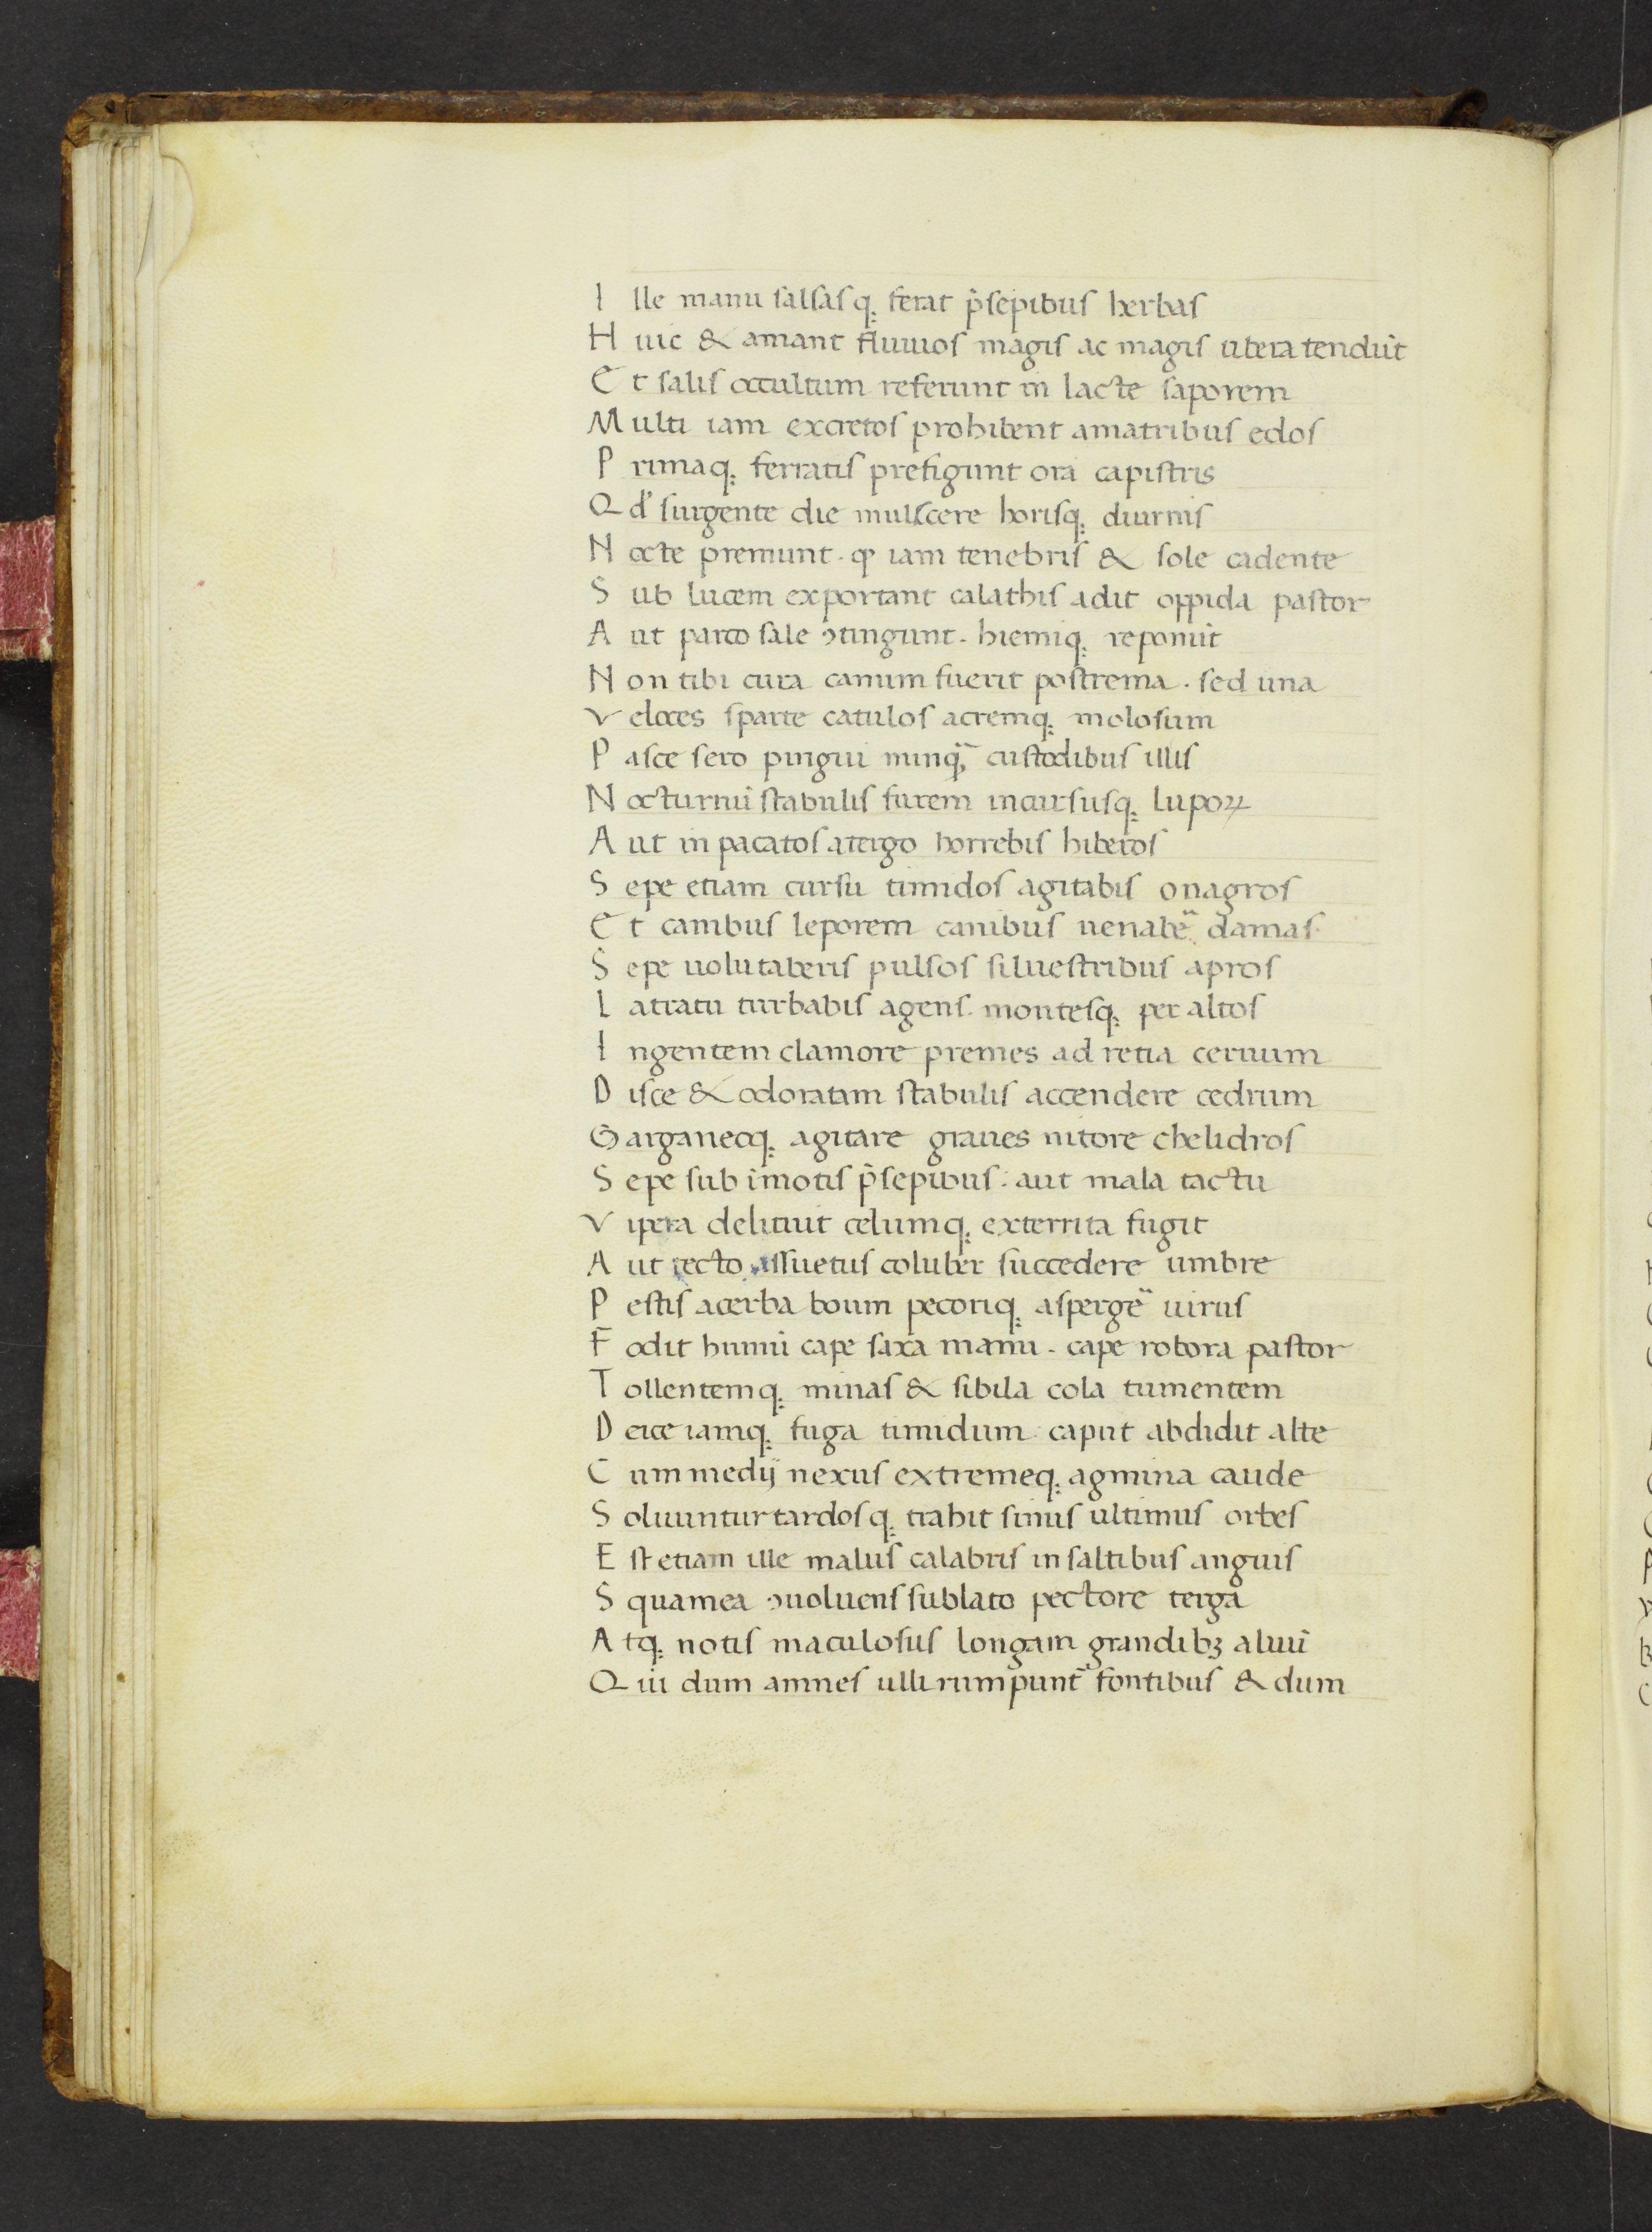 Ille manu salsasq; ferat p̄sepibus herbas
Huic & amant fluuios magis ac magis ubera tendūt
Et salis occultum referunt in lacte saporem
Multi iam excretos prohibent amatribus edos
Primaq; ferratis prefigunt ora capistris
Qd' surgente die mulscere horisq; diurnis
Nocte premunt. qđ iam tenebris & sole cadente
Sub lucem exportant calathis adit oppida pastor
Aut parco sale ꝯtingunt. hiemiq; reponūt
Non tibi cura canum fuerit postrema. sed una
Veloces sparte catulos acremq; molosum
Pasce sero pingui nunq̄; custodibus illis
Nocturnū stabulis furem incursusq; lupoꝝ
Aut in pacatos atergo horrebis hiberos
Sepe etiam cursu timidos agitabis onagros
Et canibus leporem canibus uenabe᷑ damas.
Sepe uolutaberis pulsos siluestribus apros
Latratu turbabis agens. montesq; per altos
Ingentem clamore premes ad retia ceruum
Disce & odoratam stabulis accendere cedrum
Garganeoq; agitare graues nitore chelidros
Sepe sub īmotis p̄sepibus. aut mala tactu
Vipera delituit celumq; exterrita fugit
Aut tecto assuetus coluber succedere umbre
Pestis acerba boum pecoriq; asperge᷑ uirus
Fodit humū cape saxa manu. cape robora pastor
Tollentemq; minas & sibila cola tumentem
Deice iamq; fuga timidum caput abdidit alte
Cum medij nexus extremeq; agmina caude
Soluuntur tardosq; trahit sinus ultimus orbes
Est etiam ille malus calabris in saltibus anguis
Squamea ꝯuoluens sublato pectore terga
Atq; notis maculosus longam grandibꝫ aluū
Qui dum amnes ulli rumpunt᷑ fontibus & dum